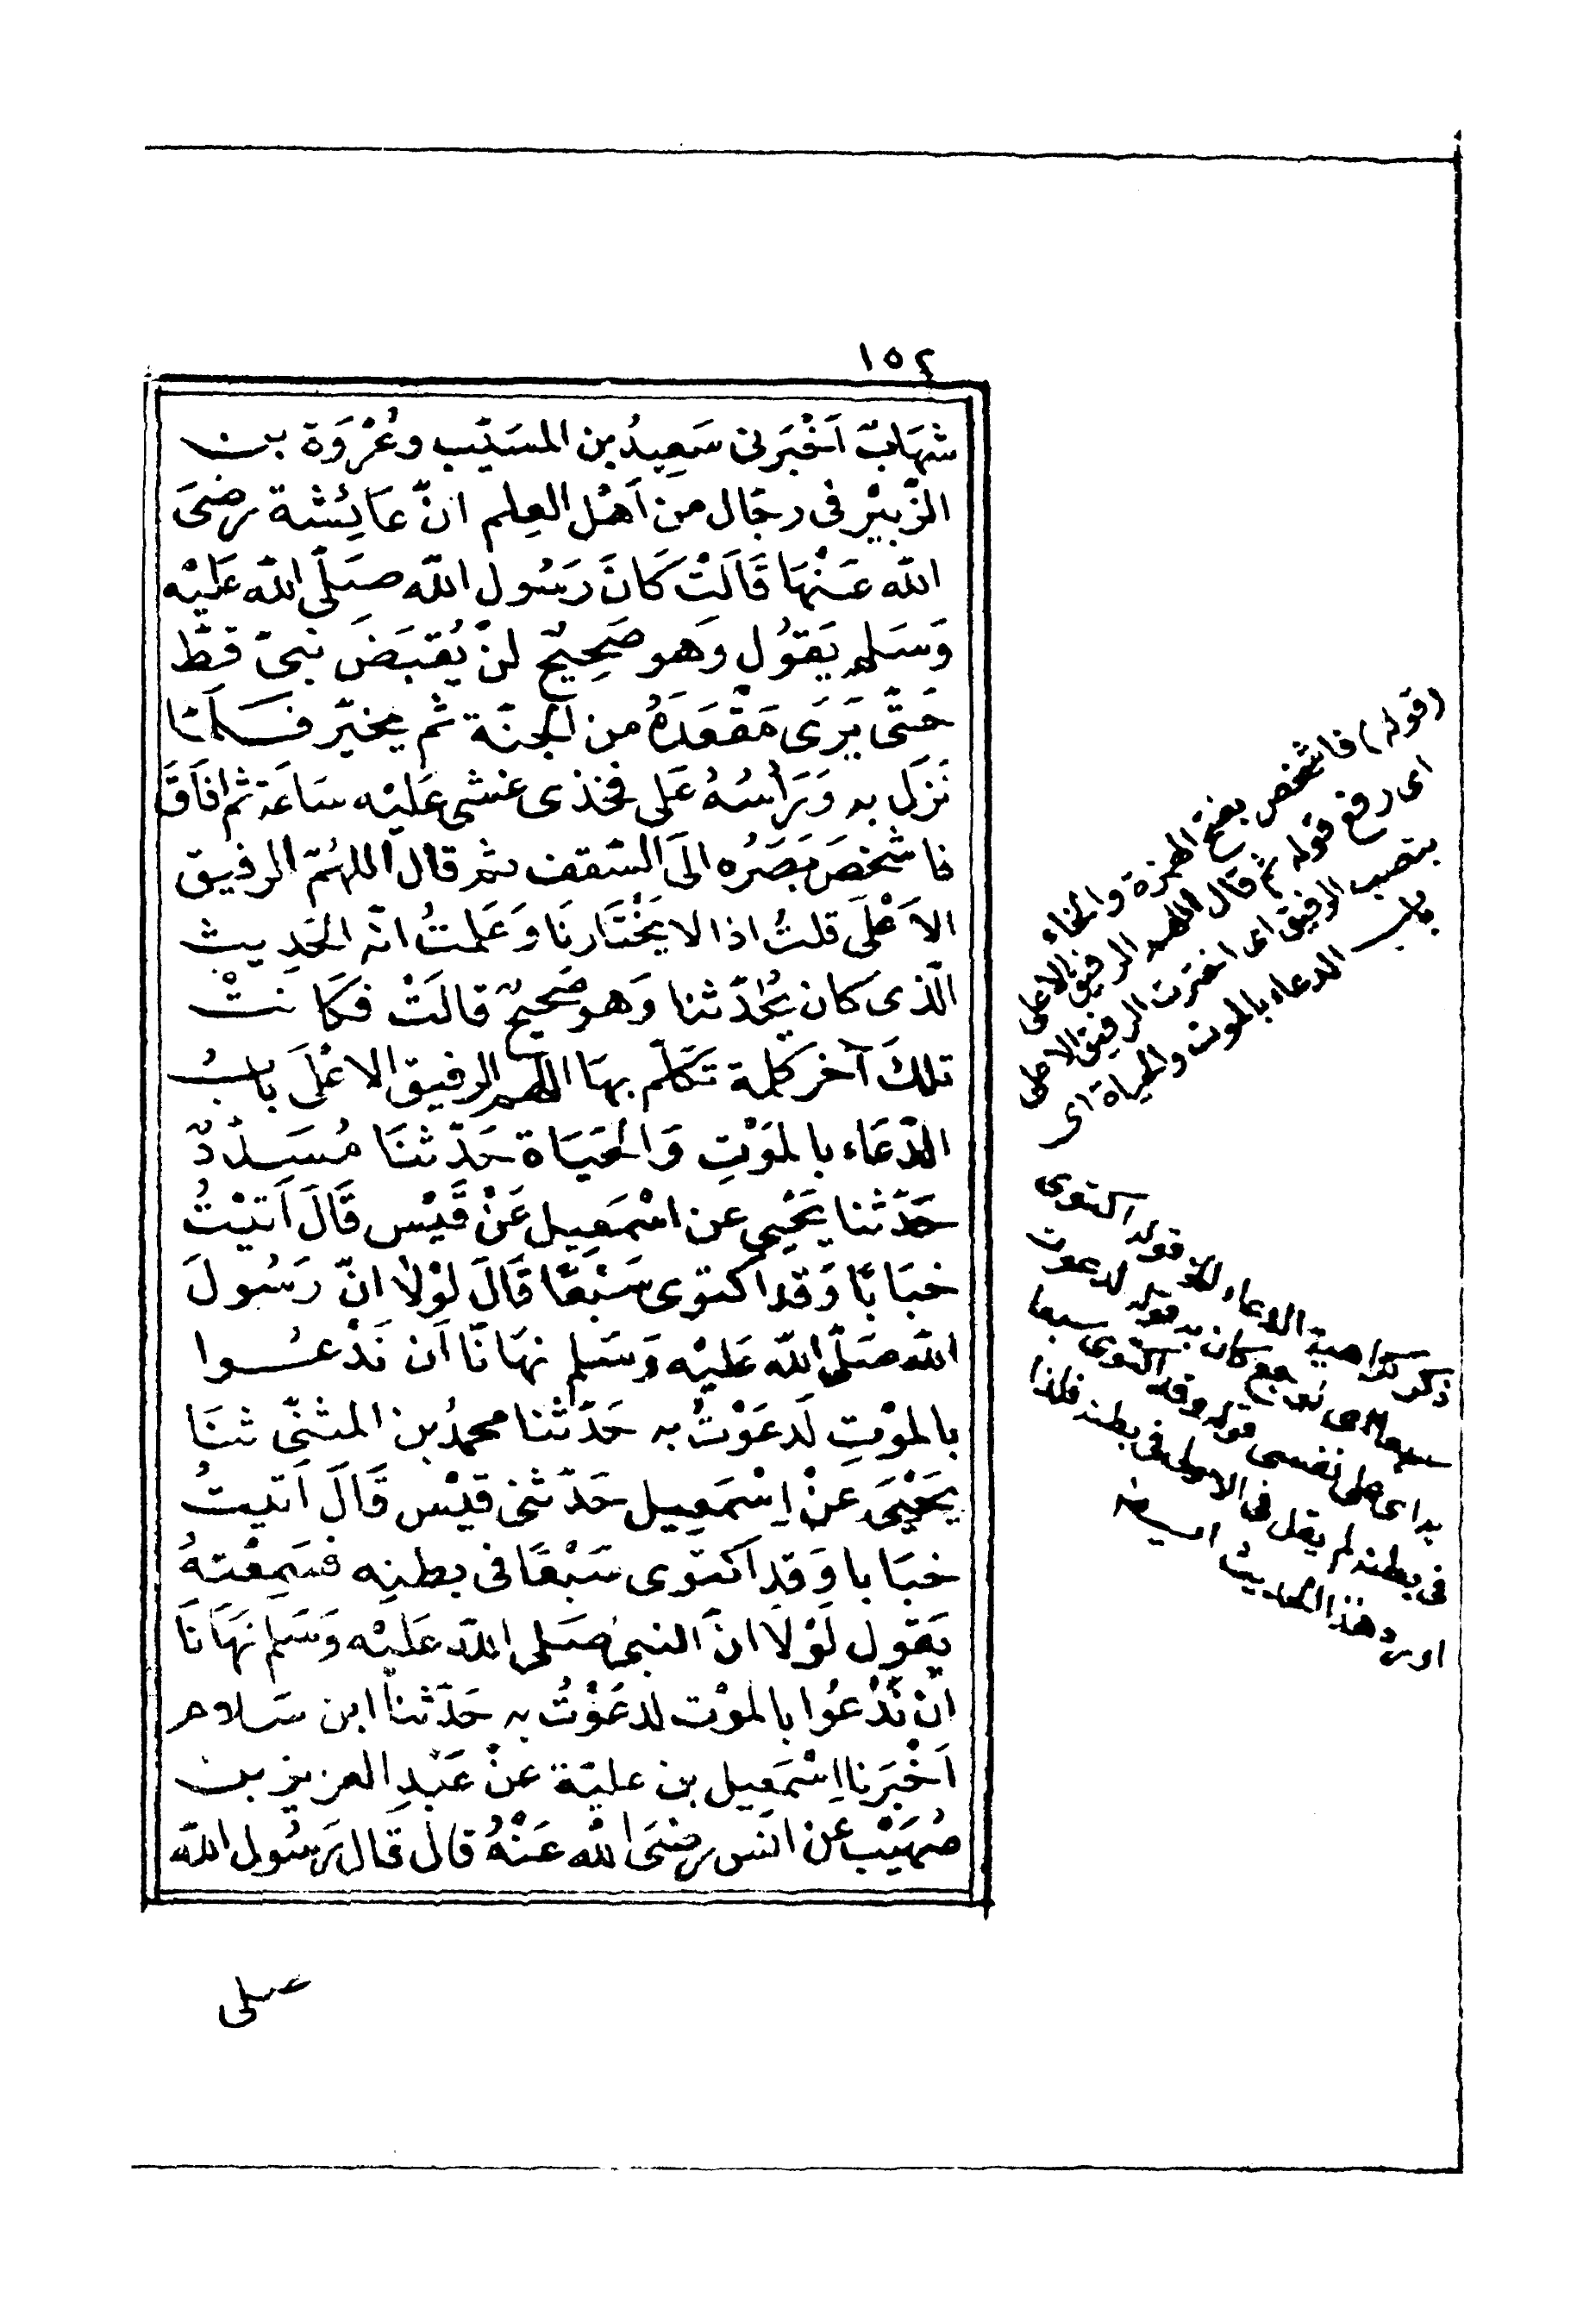 ١٥٤
شهَابٌ اَخْبَرَنى سَعِيدُ بن المسَيّب وعُرْوَة بن
الزّبيْر فى رجَال من اَهْل العِلم انّ عَائِشة رضىَ
الله عَنْهَا قَالَتْ كَانَ رَسُول الله صَلّى الله عَليْه
وَسَلم يَقوُل وَهو صَحِيحٌ لنْ يُقبَضَ نبىّ قطّ
حَتّى يَرَى مَقْعَدَهُ من الجنّة ثم يخيّر فَلمّا
نَزَل به وَرَأسُهُ عَلى فخذى غشى عَليْه سَاعَة ثم افَاقَ
فاشخصَ بَصَرُه الىَ السّقف ثم قال اللهُمّ الرفيق
الاَعْلَى قلتُ اذا لا يَخْتَارنَا وَعَلمتُ انّه الحَدِيث
الّذى كان يُحَدّثنا وَهو صَحيحٌ قالَتْ فكَانَتْ
تلكَ آخر كلمة تَكَلّم بهَا اللهم الرفيق الاعْلَى بابُ
الدّعَاء بالموَْتِ وَالحَيَاة حَدّثنَا مُسَدّدٌ
حَدّثنا يَحْيى عن اسْمَعِيل عَنْ قَيْس قَالَ اَتيْتُ
خبَابًا وَقد اكتوى سَبْعًا قَالَ لوْلَا انّ رَسُولَ
الله صَلّى الله عَليْه وَسَلم نهَانَا اَن نَدْعُوا
بالموْتِ لَدعَوْتُ به حَدّثنا محمدُ بن المثنّى ثنَا
يَحْيىَ عَنْ اِسْمَعِيل حَدّثنى قيْس قَالَ اَتيتُ
خبَابا وَقدِ اكتوى سَبْعًا فى بطنِه فسَمِعْتهُ
يَقول لَوْلَا انّ النبىّ صَلى الله عَليْه وَسَلم نهَانَا
انْ نَدْعُوا بالموْت لدعَوْتُ به حَدّثنا ابن سَلام
اَخْبَرنا اِسْمَعِيل بن عليّة عَنْ عَبْدِ العزيز بن
صُهَيْب عن انَس رضىَ الله عَنْهُ قال قَال رَسُول الله
صلى
(قوله) فاشخص بفتح الهمزة والخاء
اى رفع قوله ثم قال اللهم الرفيق الاعلى
بنصب الرفيق اى اخترت الرفيق الاعلى
باب الدعاء بالموت والحياة اى
ذكر كراهية الدعاء قوله اكتوى
سبعا قوله لدعوت
به اى على نفسى قوله وقد اكتوى سبعا
فى بطنه لم يقل فى الاولى فى بطنه فلذا
اورد هذا الحديث ايضا